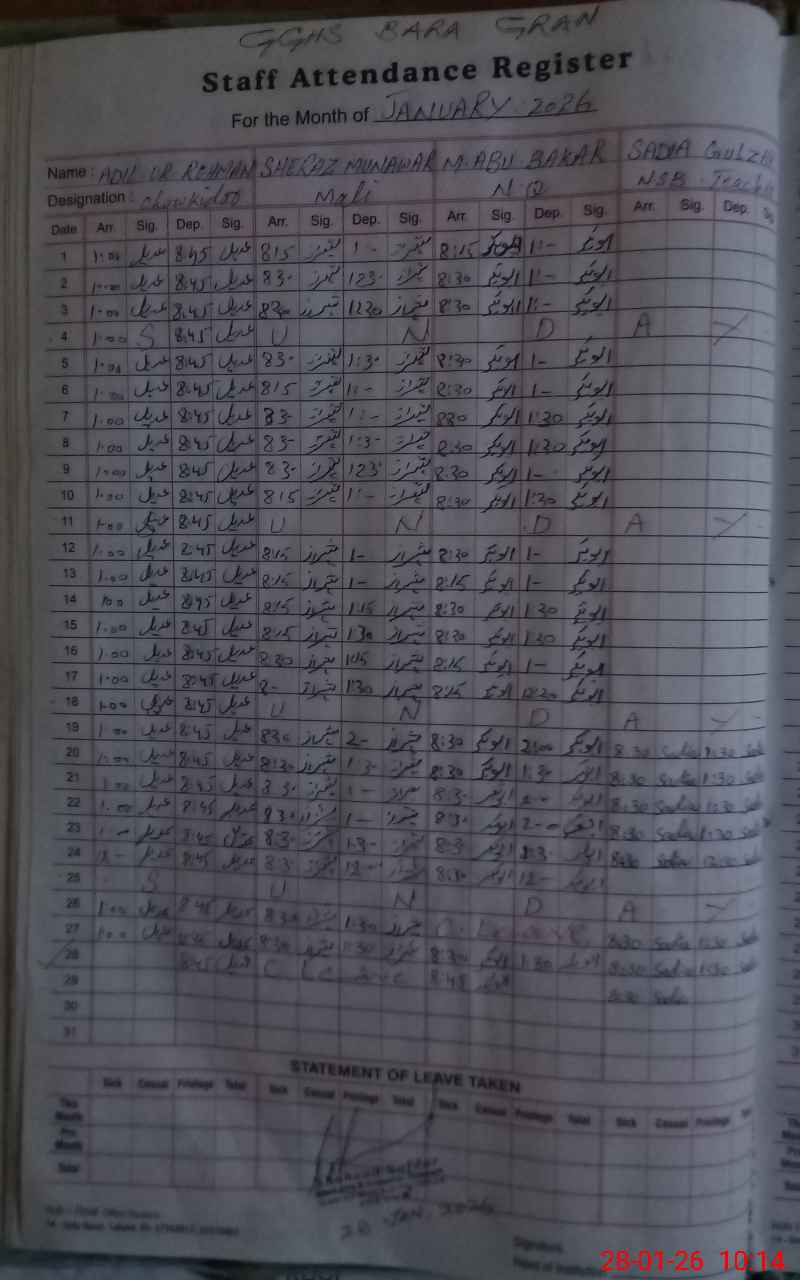 GGHS BARA GRAN
Staff Attendance Register
For the Month of JANUARY 2026
Name : ADIL UR REHMAN SHERAZ MUNAWAR M. ABU BAKAR SADIA
Designation : Mali N.Q NSB
Date Arr. Sig. Dep. Sig. Arr. Sig. Dep. Sig. Arr. Sig. Dep. Sig. Arr. Sig. Dep.
1 1:00 عدیل 8:45 عدیل 815 شیراز 1:- شیراز 8:15 ابوبکر 1:- ابوبکر
2 1:00 عدیل 8:45 عدیل 830 شیراز 1230 شیراز 8:30 ابوبکر 1:- ابوبکر
3 1:00 عدیل 8:45 عدیل 830 شیراز 1230 شیراز 8:30 ابوبکر 1:- ابوبکر
4 1:00 S 8:45 عدیل U N D A Y
5 1:00 عدیل 8:45 عدیل 830 شیراز 1:30 شیراز 8:30 ابوبکر 1- ابوبکر
6 1:00 عدیل 8:45 عدیل 815 شیراز 1:- شیراز 8:30 ابوبکر 1- ابوبکر
7 1:00 عدیل 8:45 عدیل 83- شیراز 1:- شیراز 830 ابوبکر 1:30 ابوبکر
8 1:00 عدیل 8:45 عدیل 83- شیراز 1:3- شیراز 8:30 ابوبکر 1:30 ابوبکر
9 1:00 عدیل 8:45 عدیل 83- شیراز 123- شیراز 8:30 ابوبکر 1- ابوبکر
10 1:00 عدیل 8:45 عدیل 815 شیراز 1:- شیراز 8:30 ابوبکر 1:30 ابوبکر
11 1:00 عدیل 8:45 عدیل U N D A Y
12 1:00 عدیل 8:45 عدیل 8:15 شیراز 1- شیراز 8:30 ابوبکر 1- ابوبکر
13 1:00 عدیل 8:45 عدیل 8:15 شیراز 1- شیراز 8:15 ابوبکر 1- ابوبکر
14 عدیل 8:45 عدیل 8:15 شیراز 1:15 شیراز 8:30 ابوبکر 1:30 ابوبکر
15 1:00 عدیل 8:45 عدیل 8:15 شیراز 1:30 شیراز 8:30 ابوبکر 1:30 ابوبکر
16 1:00 عدیل 8:45 عدیل 8:30 شیراز 1:15 شیراز 8:15 ابوبکر 1- ابوبکر
17 1:00 عدیل 8:45 عدیل شیراز 1:30 شیراز 8:15 ابوبکر 12:30 ابوبکر
18 1:00 عدیل 8:45 عدیل U N D A Y
19 1:00 عدیل 8:45 عدیل 830 شیراز 2- شیراز 8:30 ابوبکر 2:00 ابوبکر 8:30 Sadia 1:30 Sadia
20 1:00 عدیل 8:45 عدیل 8:30 شیراز 1:3- شیراز 8:30 ابوبکر 1:3- ابوبکر 8:30 Sadia 1:30 Sadia
21 1:00 عدیل 8:45 عدیل 83- شیراز 1- شیراز 8:3- ابوبکر ابوبکر 8:30 Sadia Sadia
22 1:00 عدیل 8:45 عدیل 83- شیراز 1- شیراز 8:3- ابوبکر 2-- 8:30 Sadia 1:30 Sadia
23 عدیل 8:45 8:3- شیراز 1:3- شیراز 8:3- ابوبکر ابوبکر 8:30 Sadia 12:30 Sadia
24 عدیل 8:45 عدیل 8:3- شیراز 12- شیراز 8:30 ابوبکر 12- ابوبکر
25 S U N D A Y
26 1:00 عدیل 8:45 عدیل 830 شیراز 1:30 شیراز C. Leave 8:30 Sadia 1:30 Sadia
27 1:00 عدیل 8:45 عدیل 8:30 شیراز 1:30 شیراز 8:30 ابوبکر 1:30 ابوبکر 8:30 Sadia 1:30 Sadia
28 8:45 عدیل C Leave 8:45 ابوبکر 8:30 Sadia
29
30
31
STATEMENT OF LEAVE TAKEN
Sick Casual Privilege Total Sick Casual Privilege Total Sick Casual Privilege Total Sick Casual Privilege
This Month
Pre. Month
Total
28 JAN. 2026
Signature
28-01-26 10:14